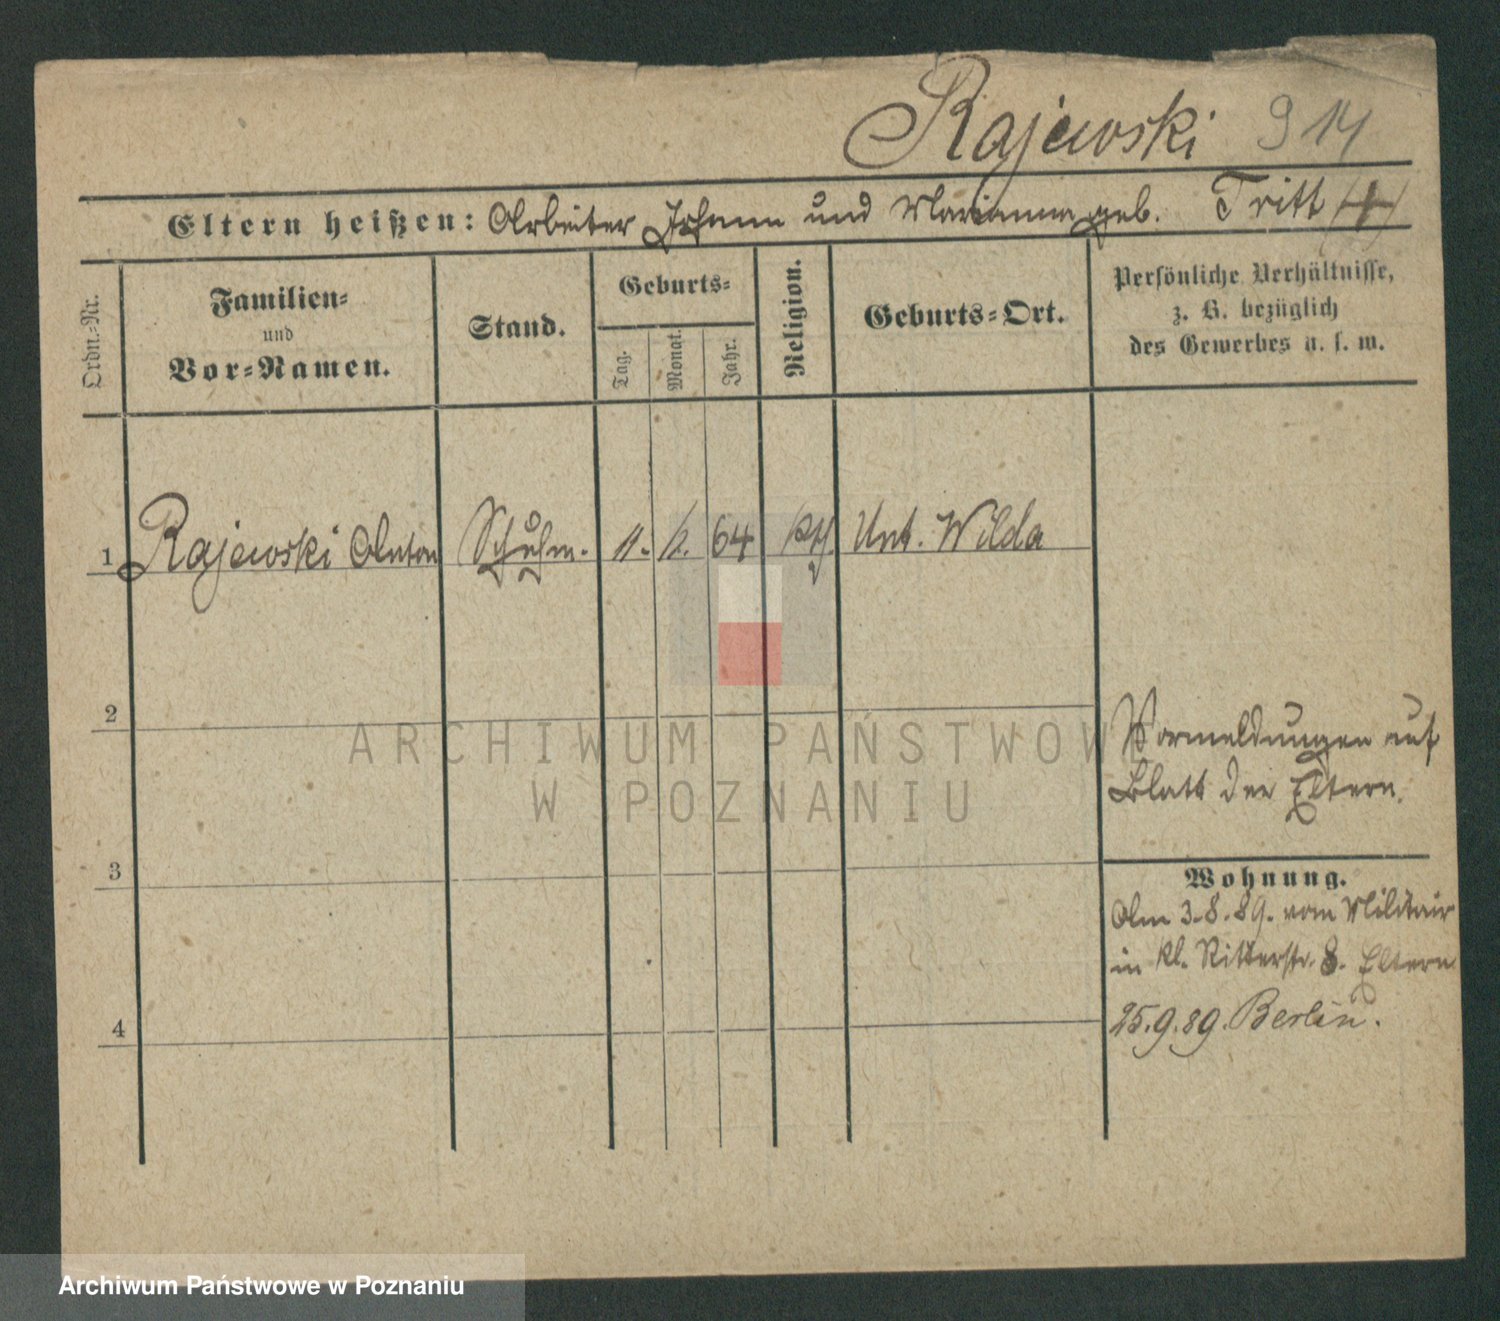 Rajewski 914
Eltern heißen: Arbeiter Johann und Marianna geb. Tritt (+)
Ordn.-Nr.
Familien-
und
Vor-Namen.
Stand.
Geburts-
Tag.
Monat.
Jahr.
Religion.
Geburts-Ort.
Persönliche Verhältnisse,
z. B. bezüglich
des Gewerbes u. s. w.
1 Rajewski Anton Schuhm. 11. 12. 64 kth. Unt. Wilda
2
Vormeldungen auf
Blatt der Eltern.
3
Wohnung.
Am 3.8.89. vom Militair
in kl. Ritterstr. 8. Eltern
4
25.9.89. Berlin.
ARCHIWUM PAŃSTWOWE
W POZNANIU
Archiwum Państwowe w Poznaniu